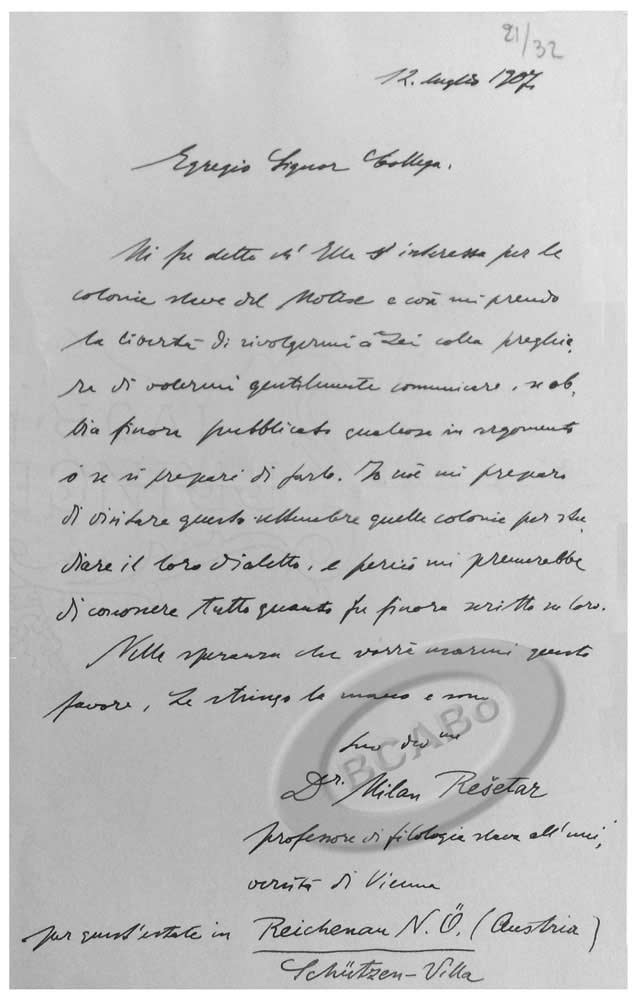 21/32
12. luglio 1907.
Egregio Signor Collega.
Mi fu detto ch' Ella s' interessa per le
colonie slave del Molise e così mi prendo
la libertà di rivolgermi a Lei colla preghie,
ra di volermi gentilmente comunicare, se ab,
bia finora pubblicato qualcosa in argomento
o se si prepari di farlo. Io mi preparo
di visitare questo settembre quelle colonie per stu,
diare il loro dialetto, e perciò mi premerebbe
di conoscere tutto quanto fu finora scritto su loro.
Nella speranza che vorrà usarmi questo
favore, Le stringo la mano e sono
Suo dev me
Dr. Milan Rešetar
professore di filologia slava all' uni,
versità di Vienna
per quest'estate in Reichenau N.Ö. (Austria)
Schützen-Villa
IBCABo